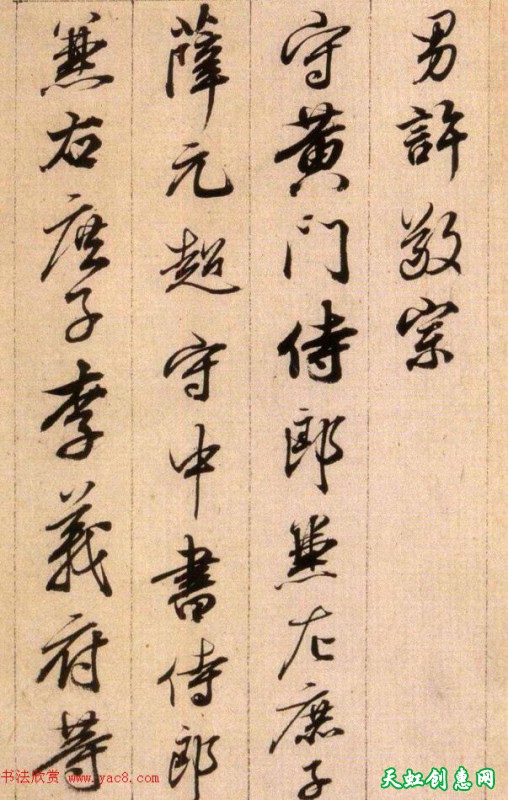 男許敬宗
守黄门侍郎兼左庶子
薛元超守中書侍郎
兼右庶子李義府等
书法欣赏 www.yac8.com
天虹创惠网